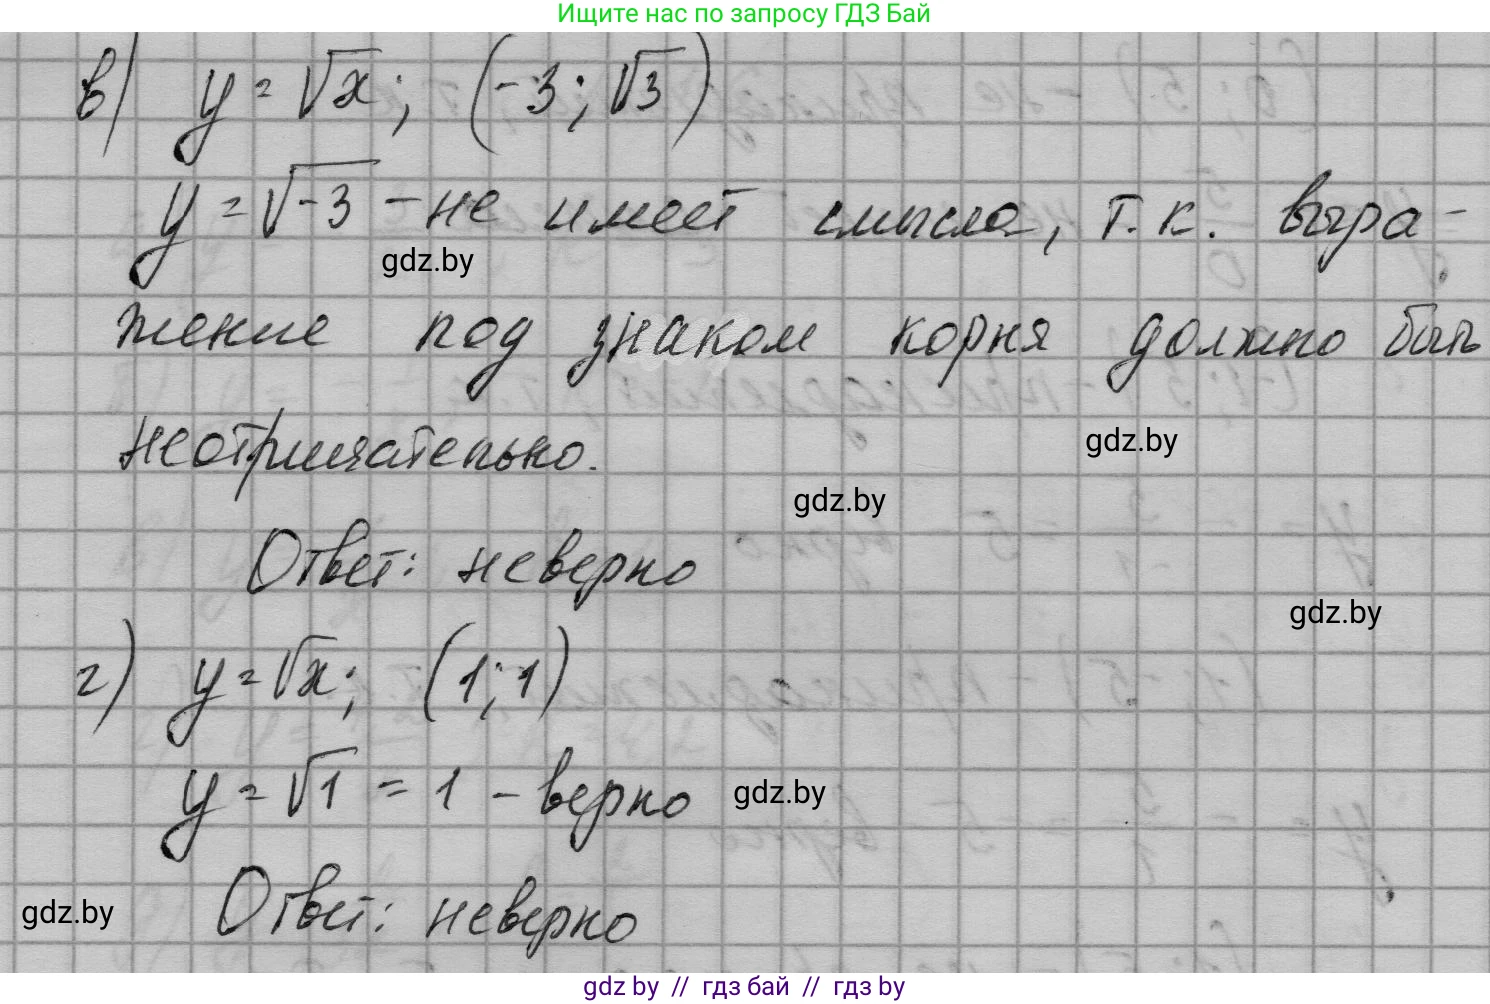 Ищите нас по запросу ГДЗ Бай
в) y = √x; (-3; √3)
y = √-3 - не имеет смысла, т.к. выра-
gdz.by
жение под знаком корня должно быть
неотрицательно.
gdz.by
gdz.by
Ответ: неверно
gdz.by
г) y = √x; (1; 1)
y = √1 = 1 - верно
gdz.by
Ответ: неверно
gdz.by
gdz.by // гдз бай // гдз by